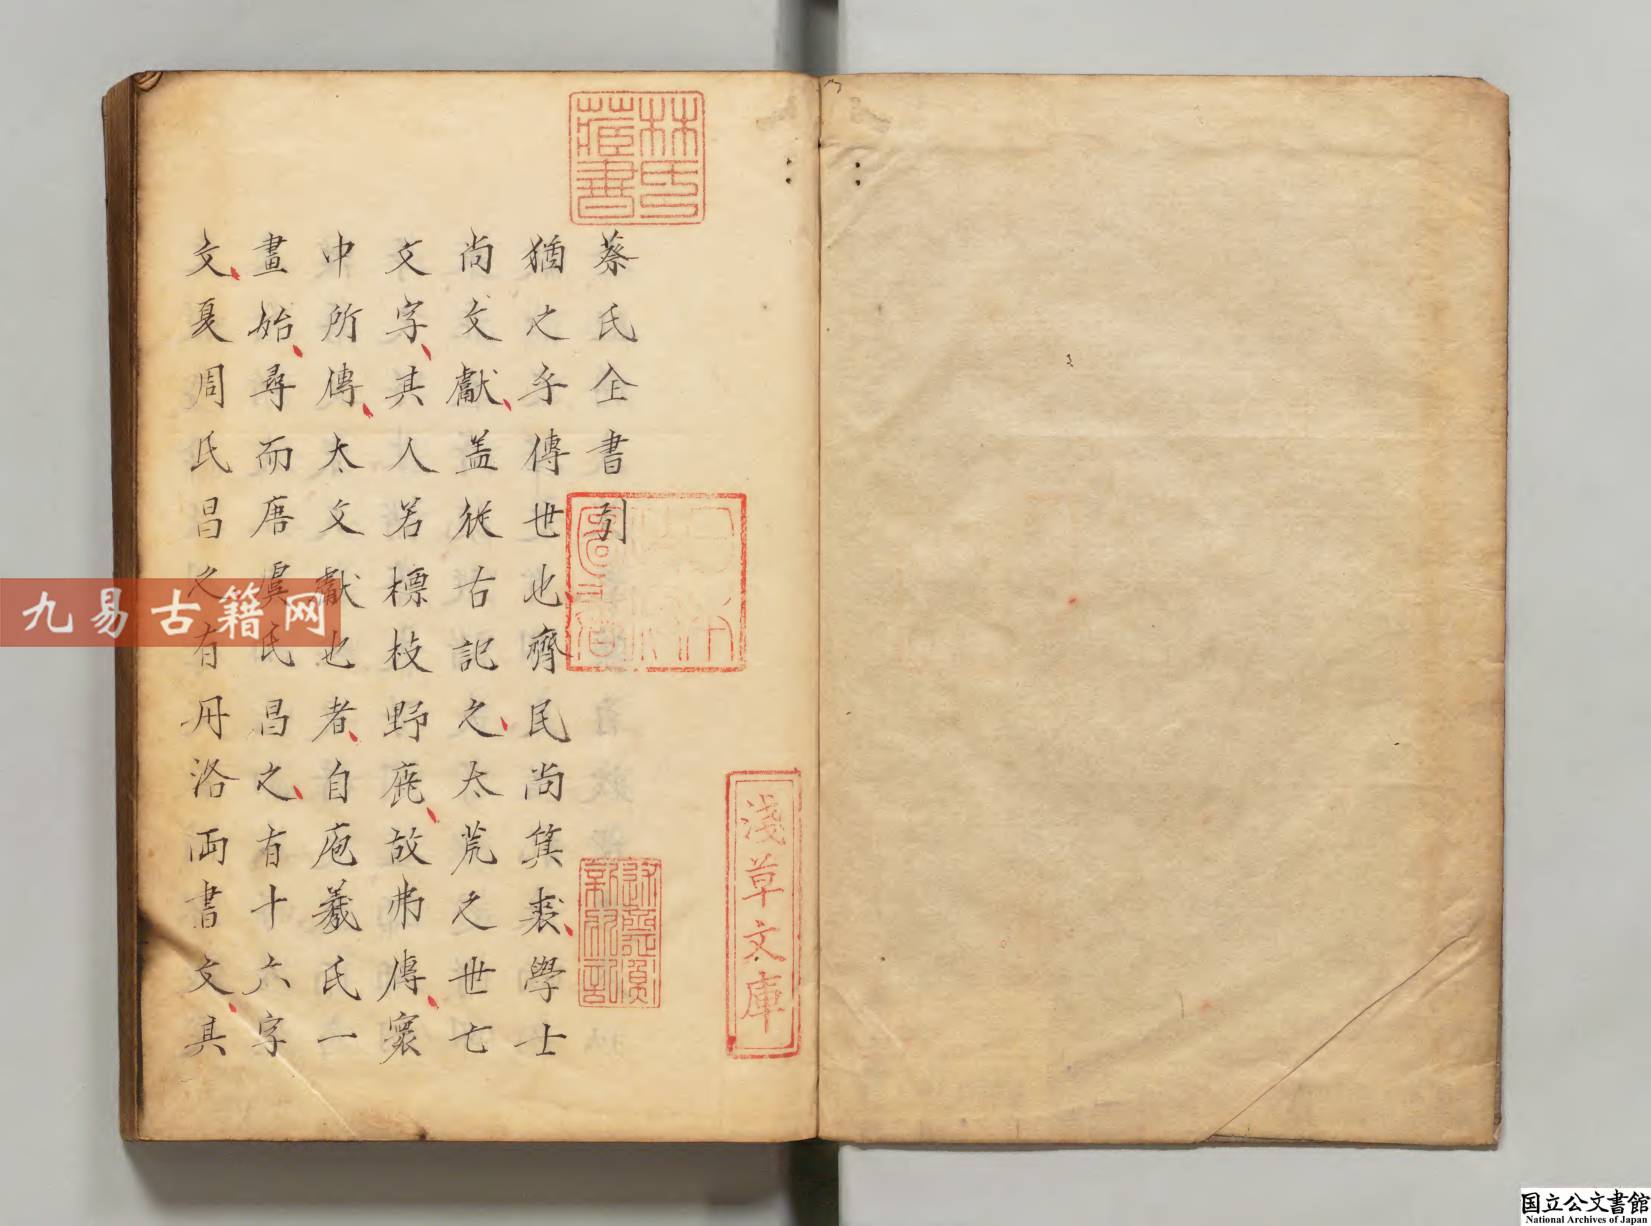 蔡氏仝書引
猶之乎傳世也齊民尚箕裘學士
尚文獻盖從古記之太荒之世七
文字其人若標枝野鹿故弗傳寰
中所傳太文獻也者自庖羲氏一
畫始尋而唐虞氏昌之有十六字
文夏周氏昌之有丹洛两書文其
林氏藏書
淺草文庫
九易古籍网
国立公文書館
National Archives of Japan